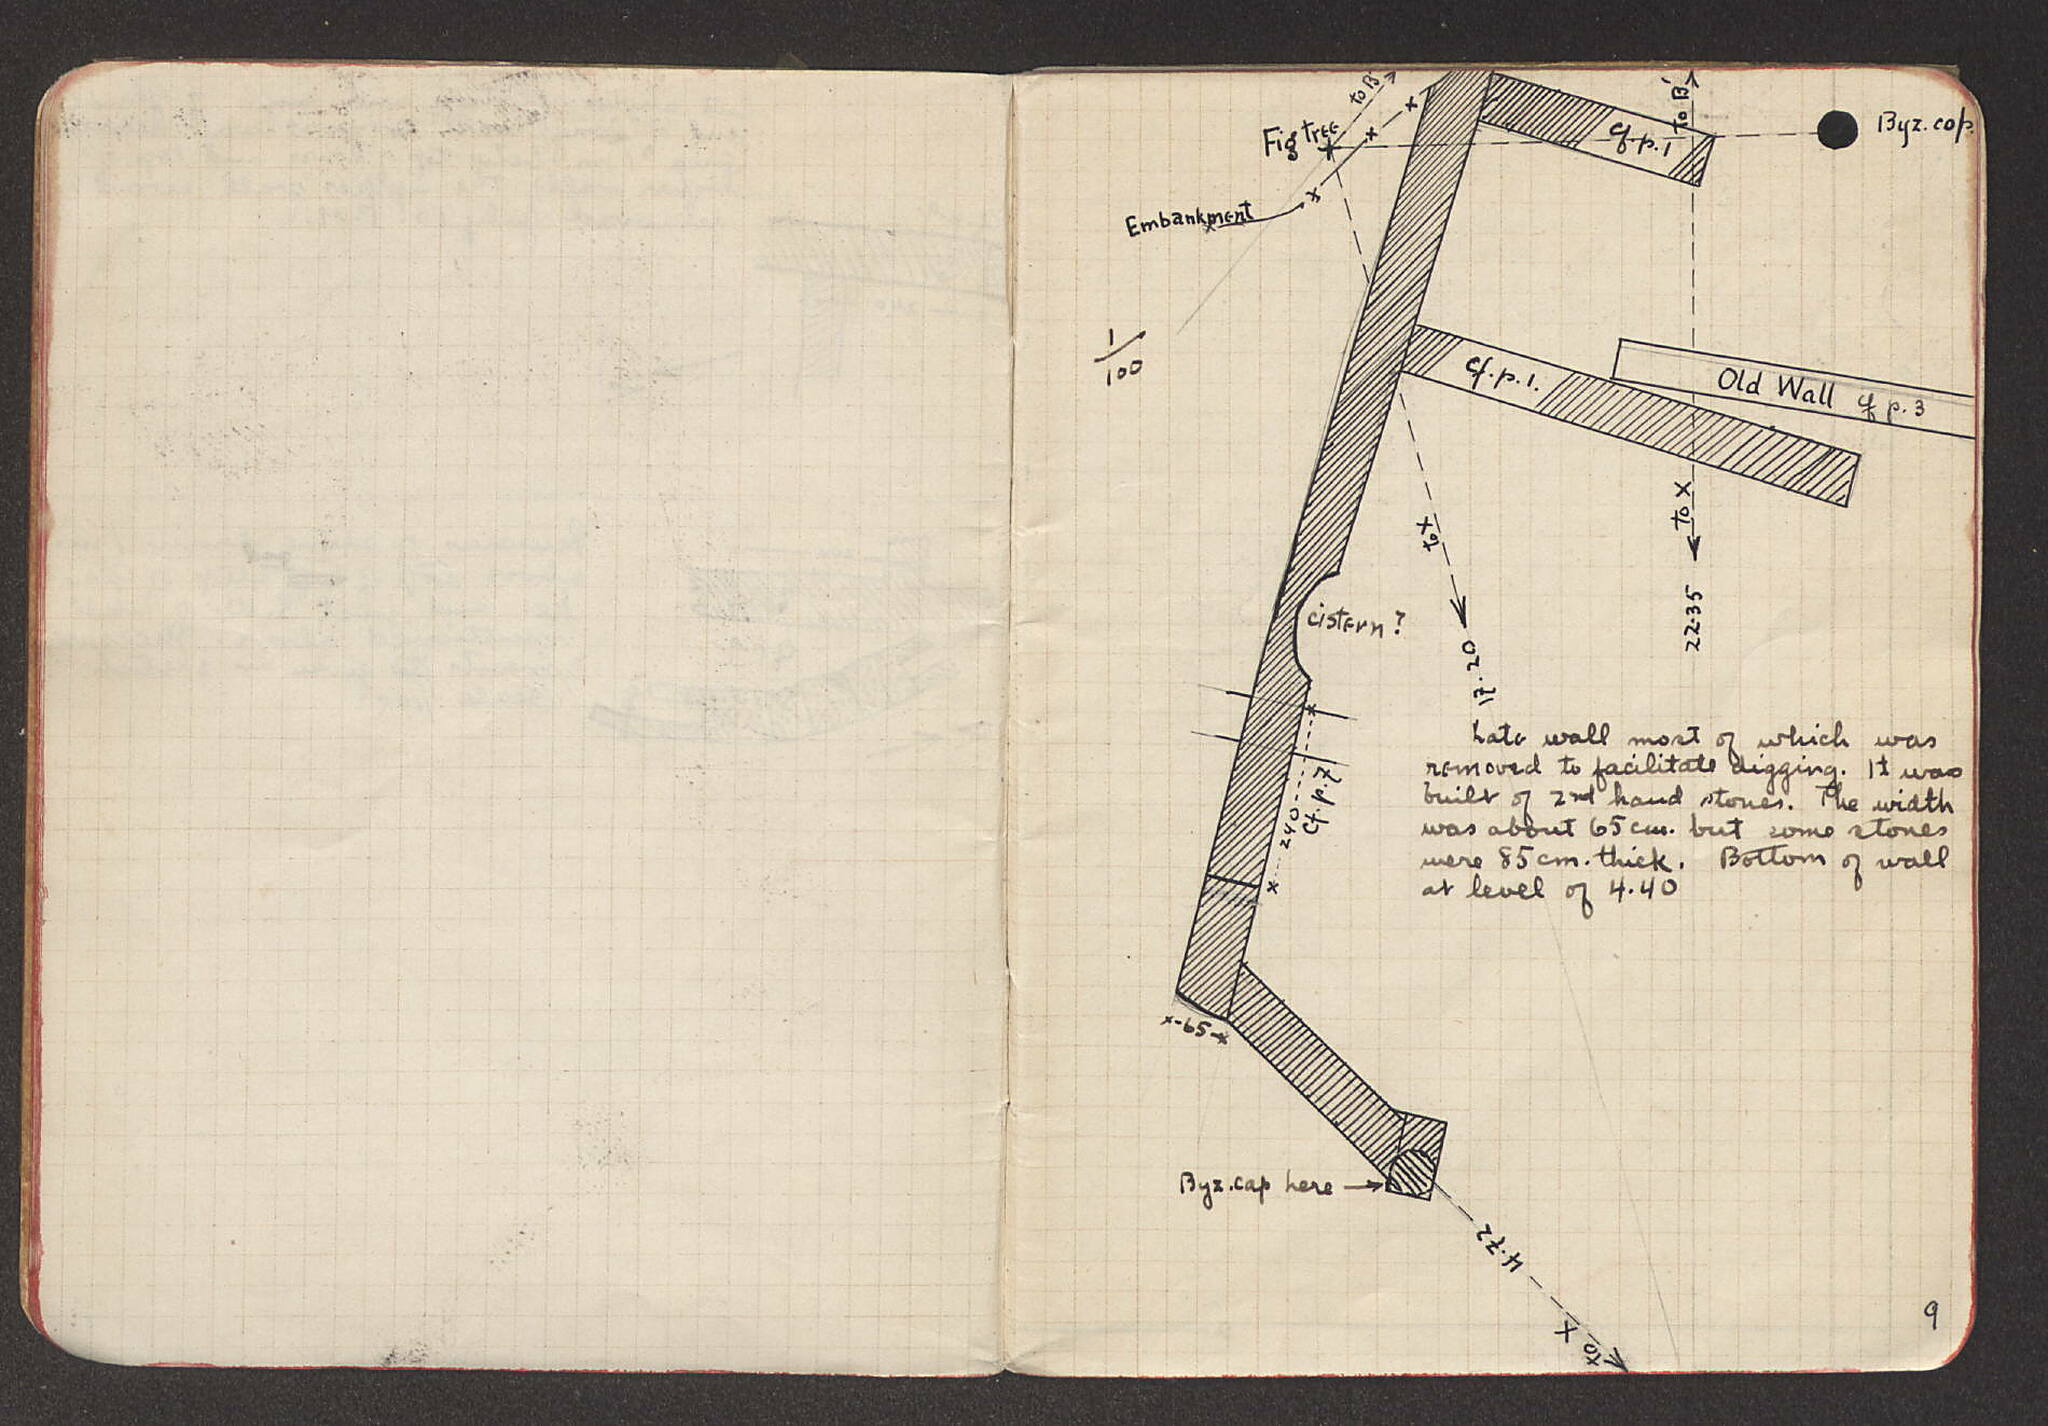 to B'
to B'
Fig tree
cf. p. 1
Byz. cap.
Embankment
1/100
cf. p. 1.
Old Wall cf p. 3
to X
to X
22.35
cistern?
17.20
Late wall most of which was
removed to facilitate digging. It was
built of 2nd hand stones. The width
was about 65 cm. but some stones
were 85 cm. thick. Bottom of wall
at level of 4.40
240
Cf. p. 7
x-65-x
Byz. cap here →
4.72
to X
9